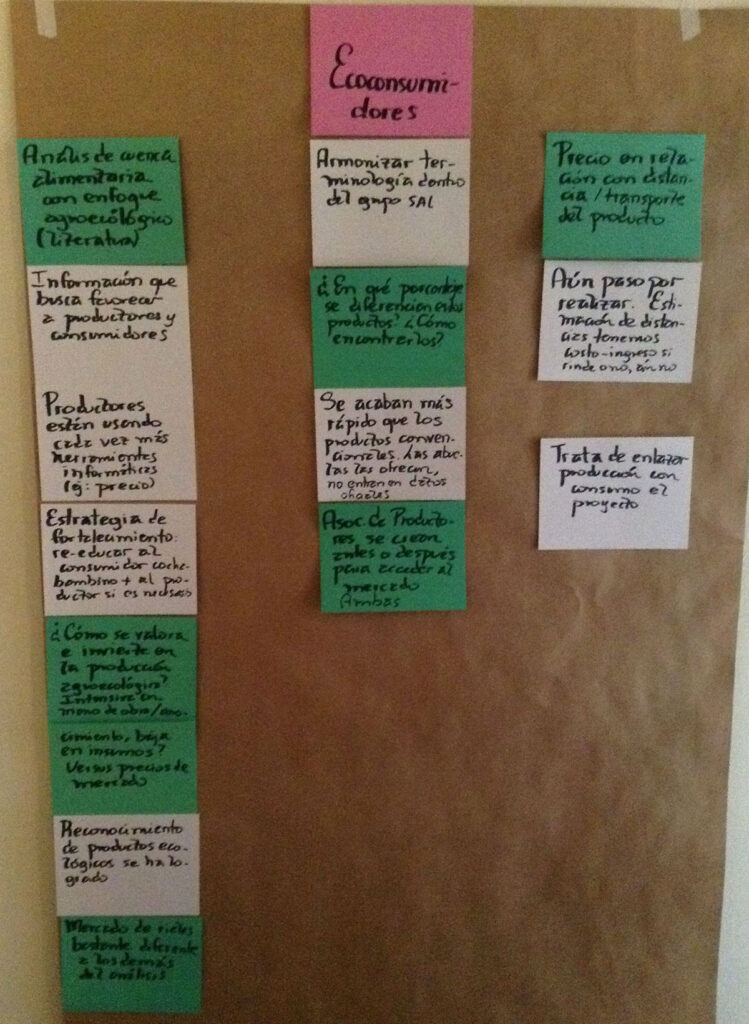 Ecoconsumi-
dores
Análisis de
alimentaria
con enfoque
agroecológico
(literatura)
Información que
busca favorecer
a productores y
consumidores
Productores
están usando
cada vez más
herramientas
informáticas
(ej: precio)
Estrategia de
fortalecimiento:
re-educar al
consumidor cocha-
bambino + al pro-
ductor si es necesario
¿Cómo se valora
e invierte en
la producción
agroecológica?
Intensiva en
mano de obra/cono-
cimiento, baja
en insumos?
Versus precios de
mercado
Reconocimiento
de productos eco-
lógicos se ha lo-
grado
Mercado de
bastante diferente
a los demás
del análisis
Armonizar ter-
minología dentro
del grupo SAL
¿En qué porcentaje
se diferencian estos
productos? ¿Cómo
encontrarlos?
Se acaban más
rápido que los
productos conven-
cionales. Las abue-
las las ofrecen,
no entran en datos
oficiales
Asoc. de Producto-
res se crean
antes o después
para acceder al
mercado
Ambas
Precio en rela-
ción con distan-
cia/transporte
del producto
Aún paso por
realizar. Esti-
mación de distan-
cias tenemos
costo-ingreso si
rinde o no, aún no
Trata de enlazar
producción con
consumo el
proyecto